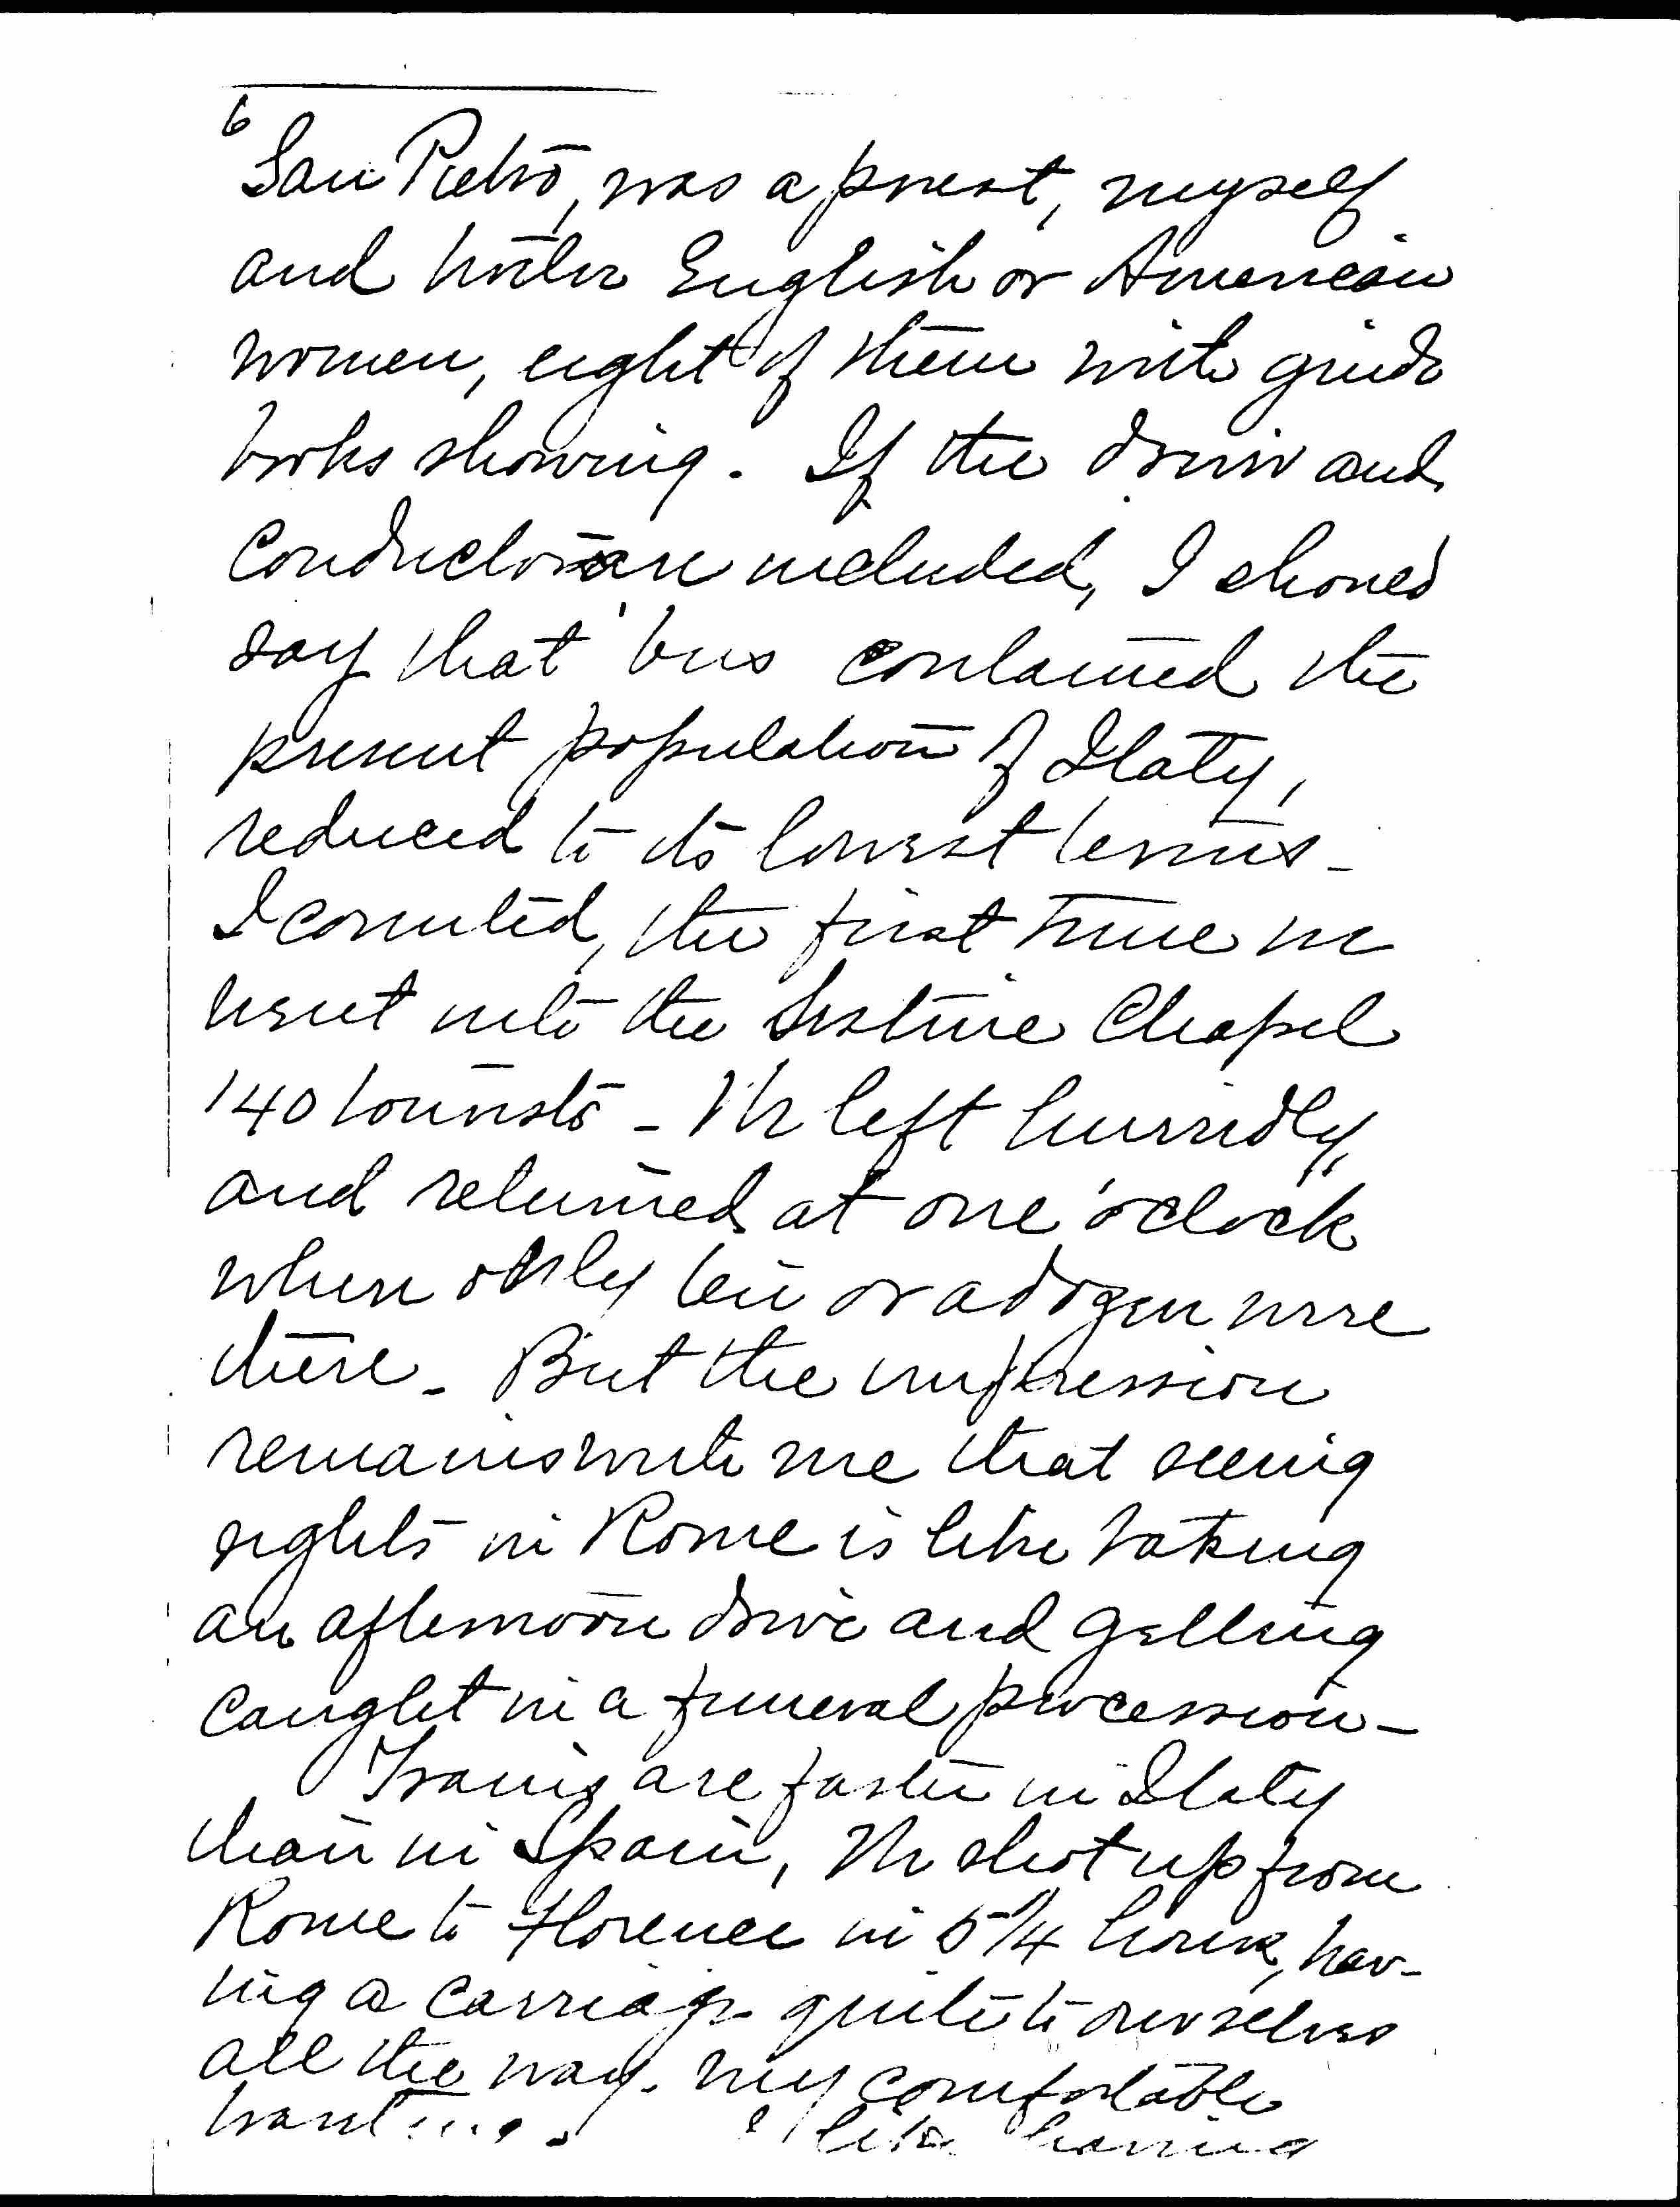 6
San Pietro, was a priest, myself
and twelve English or American
women, eight of them with guide
books showing. If the driver and
conductor are included, I should
say that 'bus contained the
present population of Italy,
reduced to its lowest terms -
I counted, the first time we
went into the Sistine Chapel
140 tourists - We left hurridly,
and returned at one o'clock
when only ten or a dozen were
there - But the impression
remains with me that seeing
sights in Rome is like taking
an afternoon drive and getting
caught in a funeral procession -
Trains are faster in Italy
than in Spain, We shot up from
Rome to Florence in 5 1/4 hours, hav-
ing a carriage quite to ourselves
all the way. my comfortable
like having